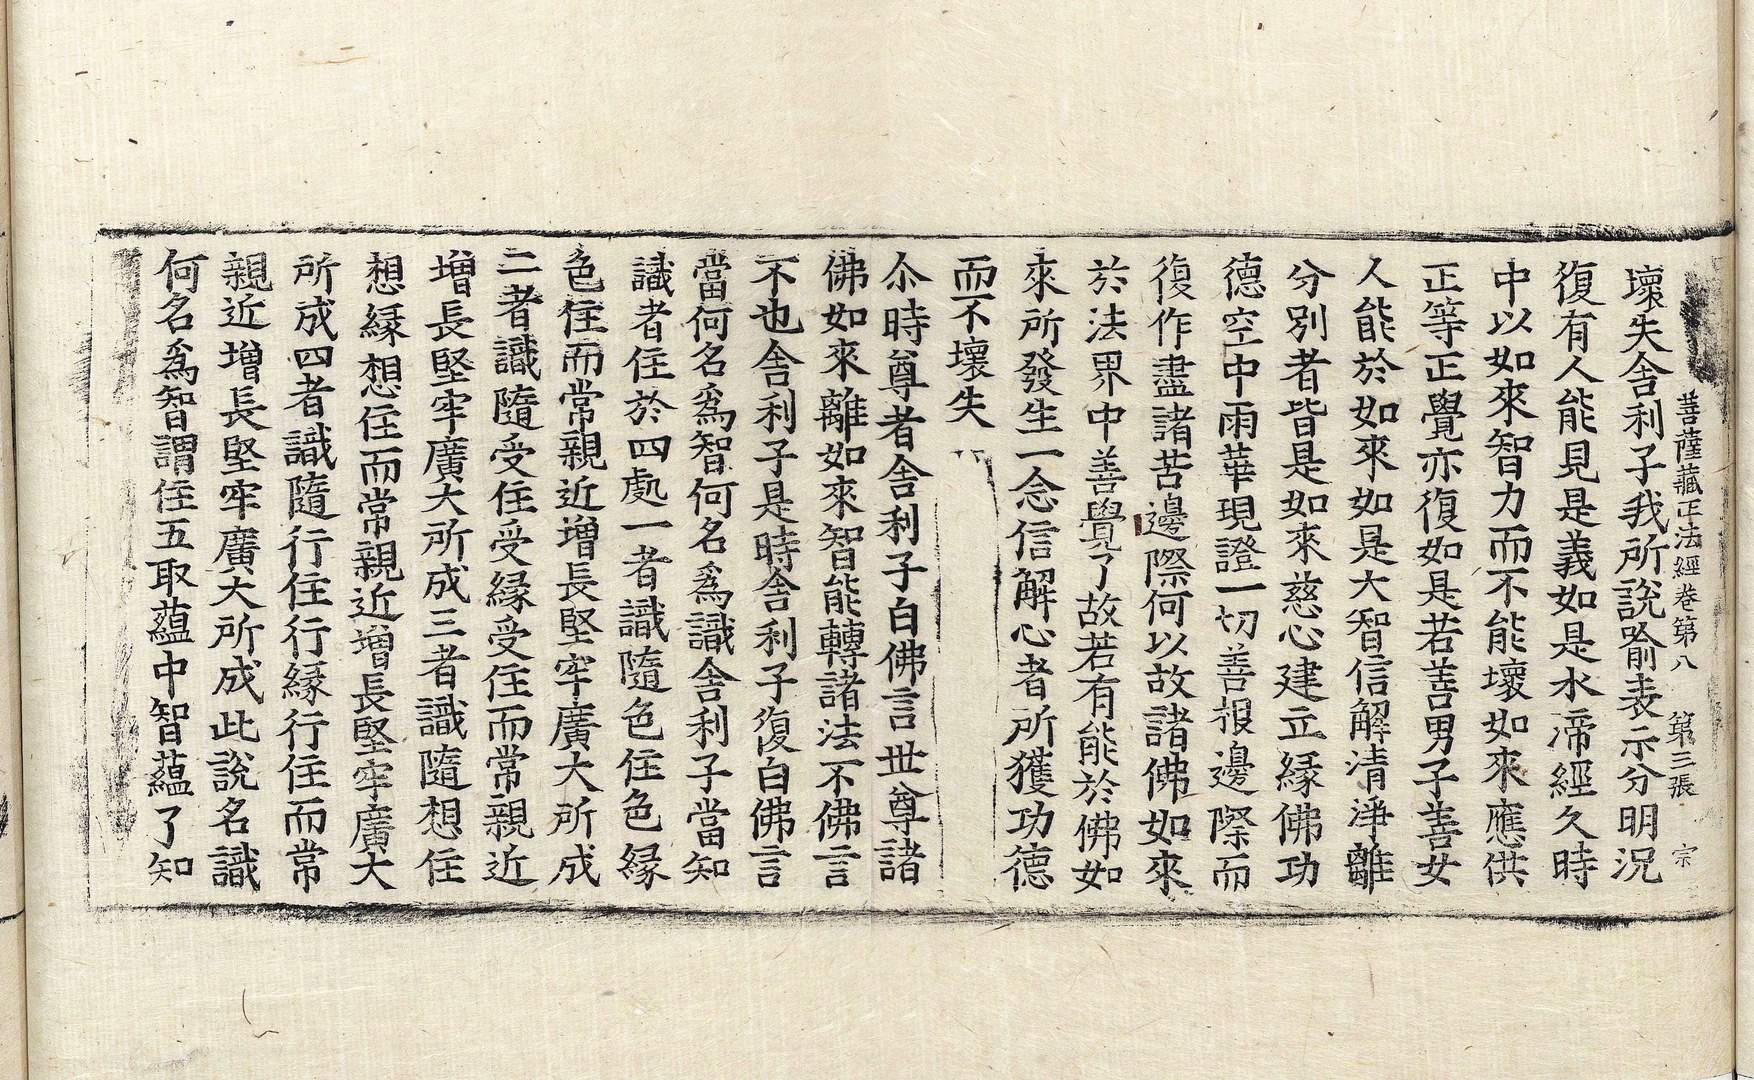 菩薩藏正法經卷第八　第三張　宗
壞失舍利子我所說喻表示分明況
復有人能見是義如是水渧經久時
中以如來智力而不能壞如來應供
正等正覺亦復如是若善男子善女
人能於如來如是大智信解清淨離
分別者皆是如來慈心建立緣佛功
德空中雨華現證一切善根邊際而
復作盡諸苦邊際何以故諸佛如來
於法界中善覺了故若有能於佛如
來所發生一念信解心者所獲功德
而不壞失
尒時尊者舍利子白佛言世尊諸
佛如來離如來智能轉諸法不佛言
不也舍利子是時舍利子復白佛言
當何名爲智何名爲識舍利子當知
識者住於四處一者識隨色住色緣
色住而常親近增長堅牢廣大所成
二者識隨受住受緣受住而常親近
增長堅牢廣大所成三者識隨想住
想緣想住而常親近增長堅牢廣大
所成四者識隨行住行緣行住而常
親近增長堅牢廣大所成此說名識
何名爲智謂住五取蘊中智蘊了知